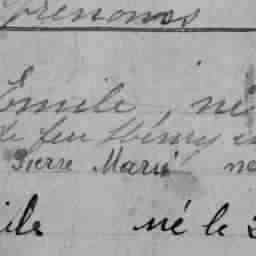 Prénoms
Emile, né
de feu Henry
Pierre Marie ne
ile né le 2